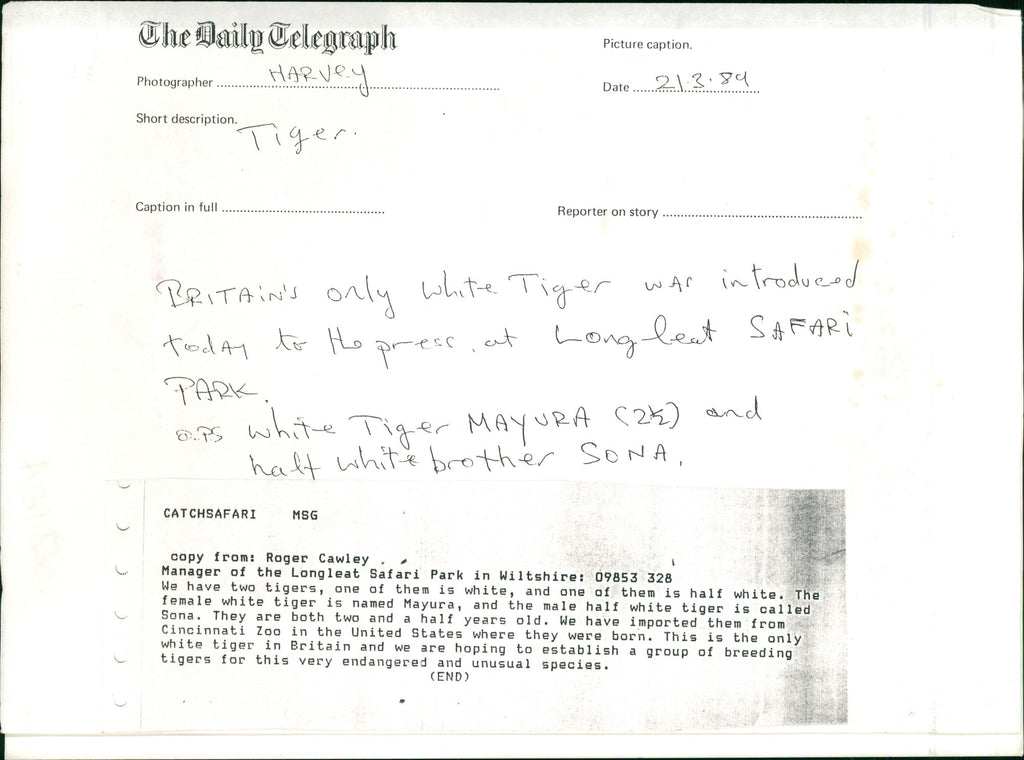 The Daily Telegraph
Picture caption.
Photographer HARVEY
Date 21.3.89
Short description. Tiger.
Caption in full
Reporter on story
BRITAIN'S only white Tiger was introduced
today to the press, at Longleat SAFARI
PARK.
PS white Tiger MAYURA (2½) and
half white brother SONA.
CATCHSAFARI MSG
copy from: Roger Cawley
Manager of the Longleat Safari Park in Wiltshire: 09853 328
We have two tigers, one of them is white, and one of them is half white. The
female white tiger is named Mayura, and the male half white tiger is called
Sona. They are both two and a half years old. We have imported them from
Cincinnati Zoo in the United States where they were born. This is the only
white tiger in Britain and we are hoping to establish a group of breeding
tigers for this very endangered and unusual species.
(END)